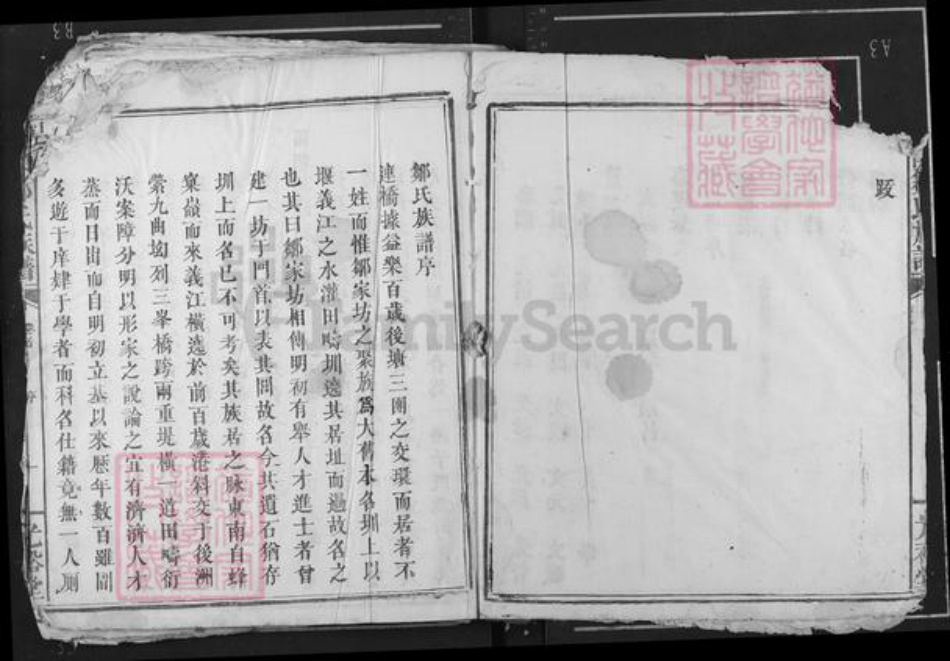 跋
鄒氏族譜序
連橋據益樂百歲後壙三圍之交環而居者不
一姓而惟鄒家坊之聚族爲大舊本名圳上以
堰義江之水灌田疇圳遶其居址而過故名之
也其曰鄒家坊相傳明初有舉人才進士者曾
建一坊于門首以表其閭故名今其遺石猶存
圳上而名已不可考矣其族居之脉東南自蜂
窠嶺而來義江橫遶於前百歲港斜交于後洲
縈九曲坳列三峯橋跨兩重堤橫一道田疇衍
沃案障分明以形家之說論之宜有濟濟人才
蒸而日出而自明初立基以來歷年數百雖間
多遊于庠肄于學者而科名仕籍竟無一人厠
氏族譜
序
FamilySearch
A3
B3